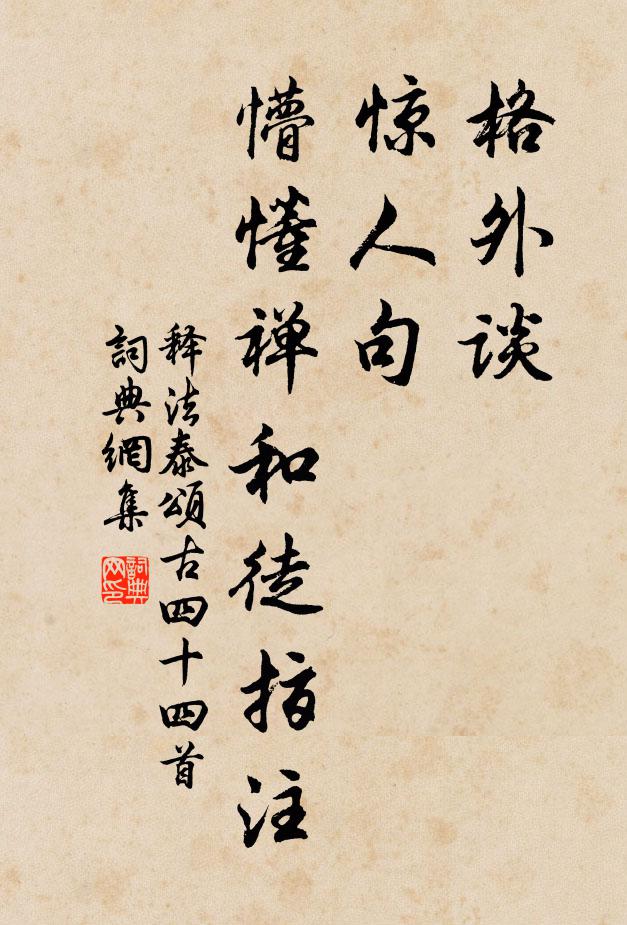 格外谈
惊人句
懵懂禅和徒指注
释法泰頌古四十四首
詞典網集
詞典网印